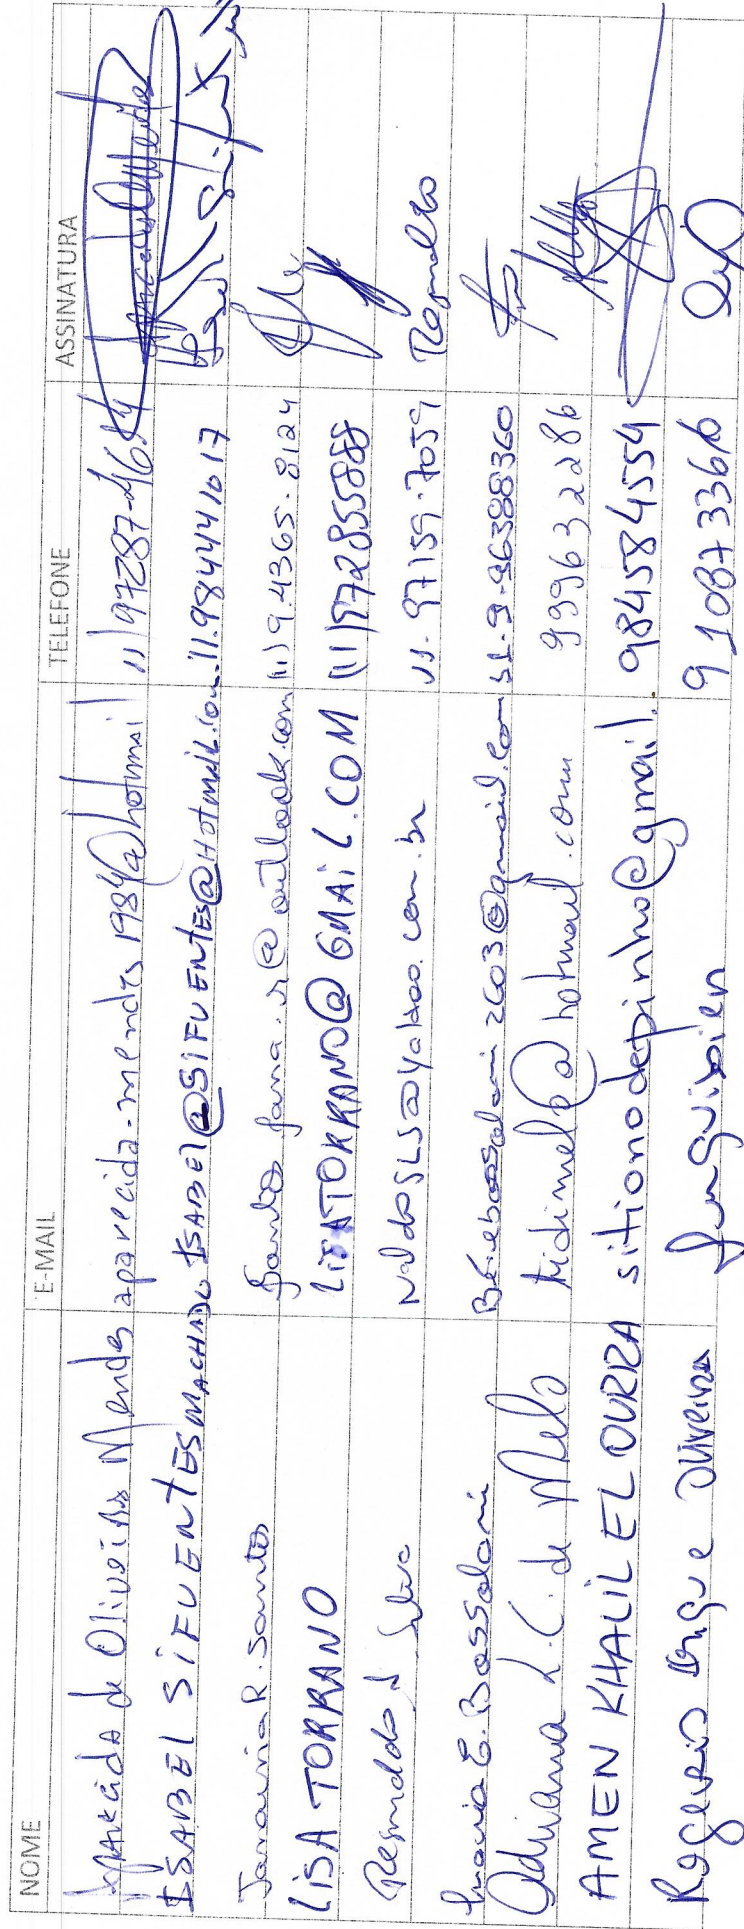 NOME E-MAIL TELEFONE ASSINATURA
Aparecida de Oliveira Mendes aparecida-mendes1984@hotmail 11)97287-4614
ISABEL SIFUENTES MACHADO ISABEL@SIFUENTES@HOTMAIL.COM 11.984441617
Janaina R. Santos Santos jana.jr@outlook.com (11)9.4365-8124
LISA TORRANO LISATORRANO@GMAIL.COM (11)972855888
Reginaldo J Silva NaldoSLS@yahoo.com.br 11-97159-7059 Reginaldo
E. Bossolani 2603@gmail.com 11-9-96388360
Adriana L.C. de Melo tidimelo@hotmail.com 999632286
AMEN KHALIL EL OURRA sitionodepinho@gmail. 984584554
Rogerio Oliveira 910873366